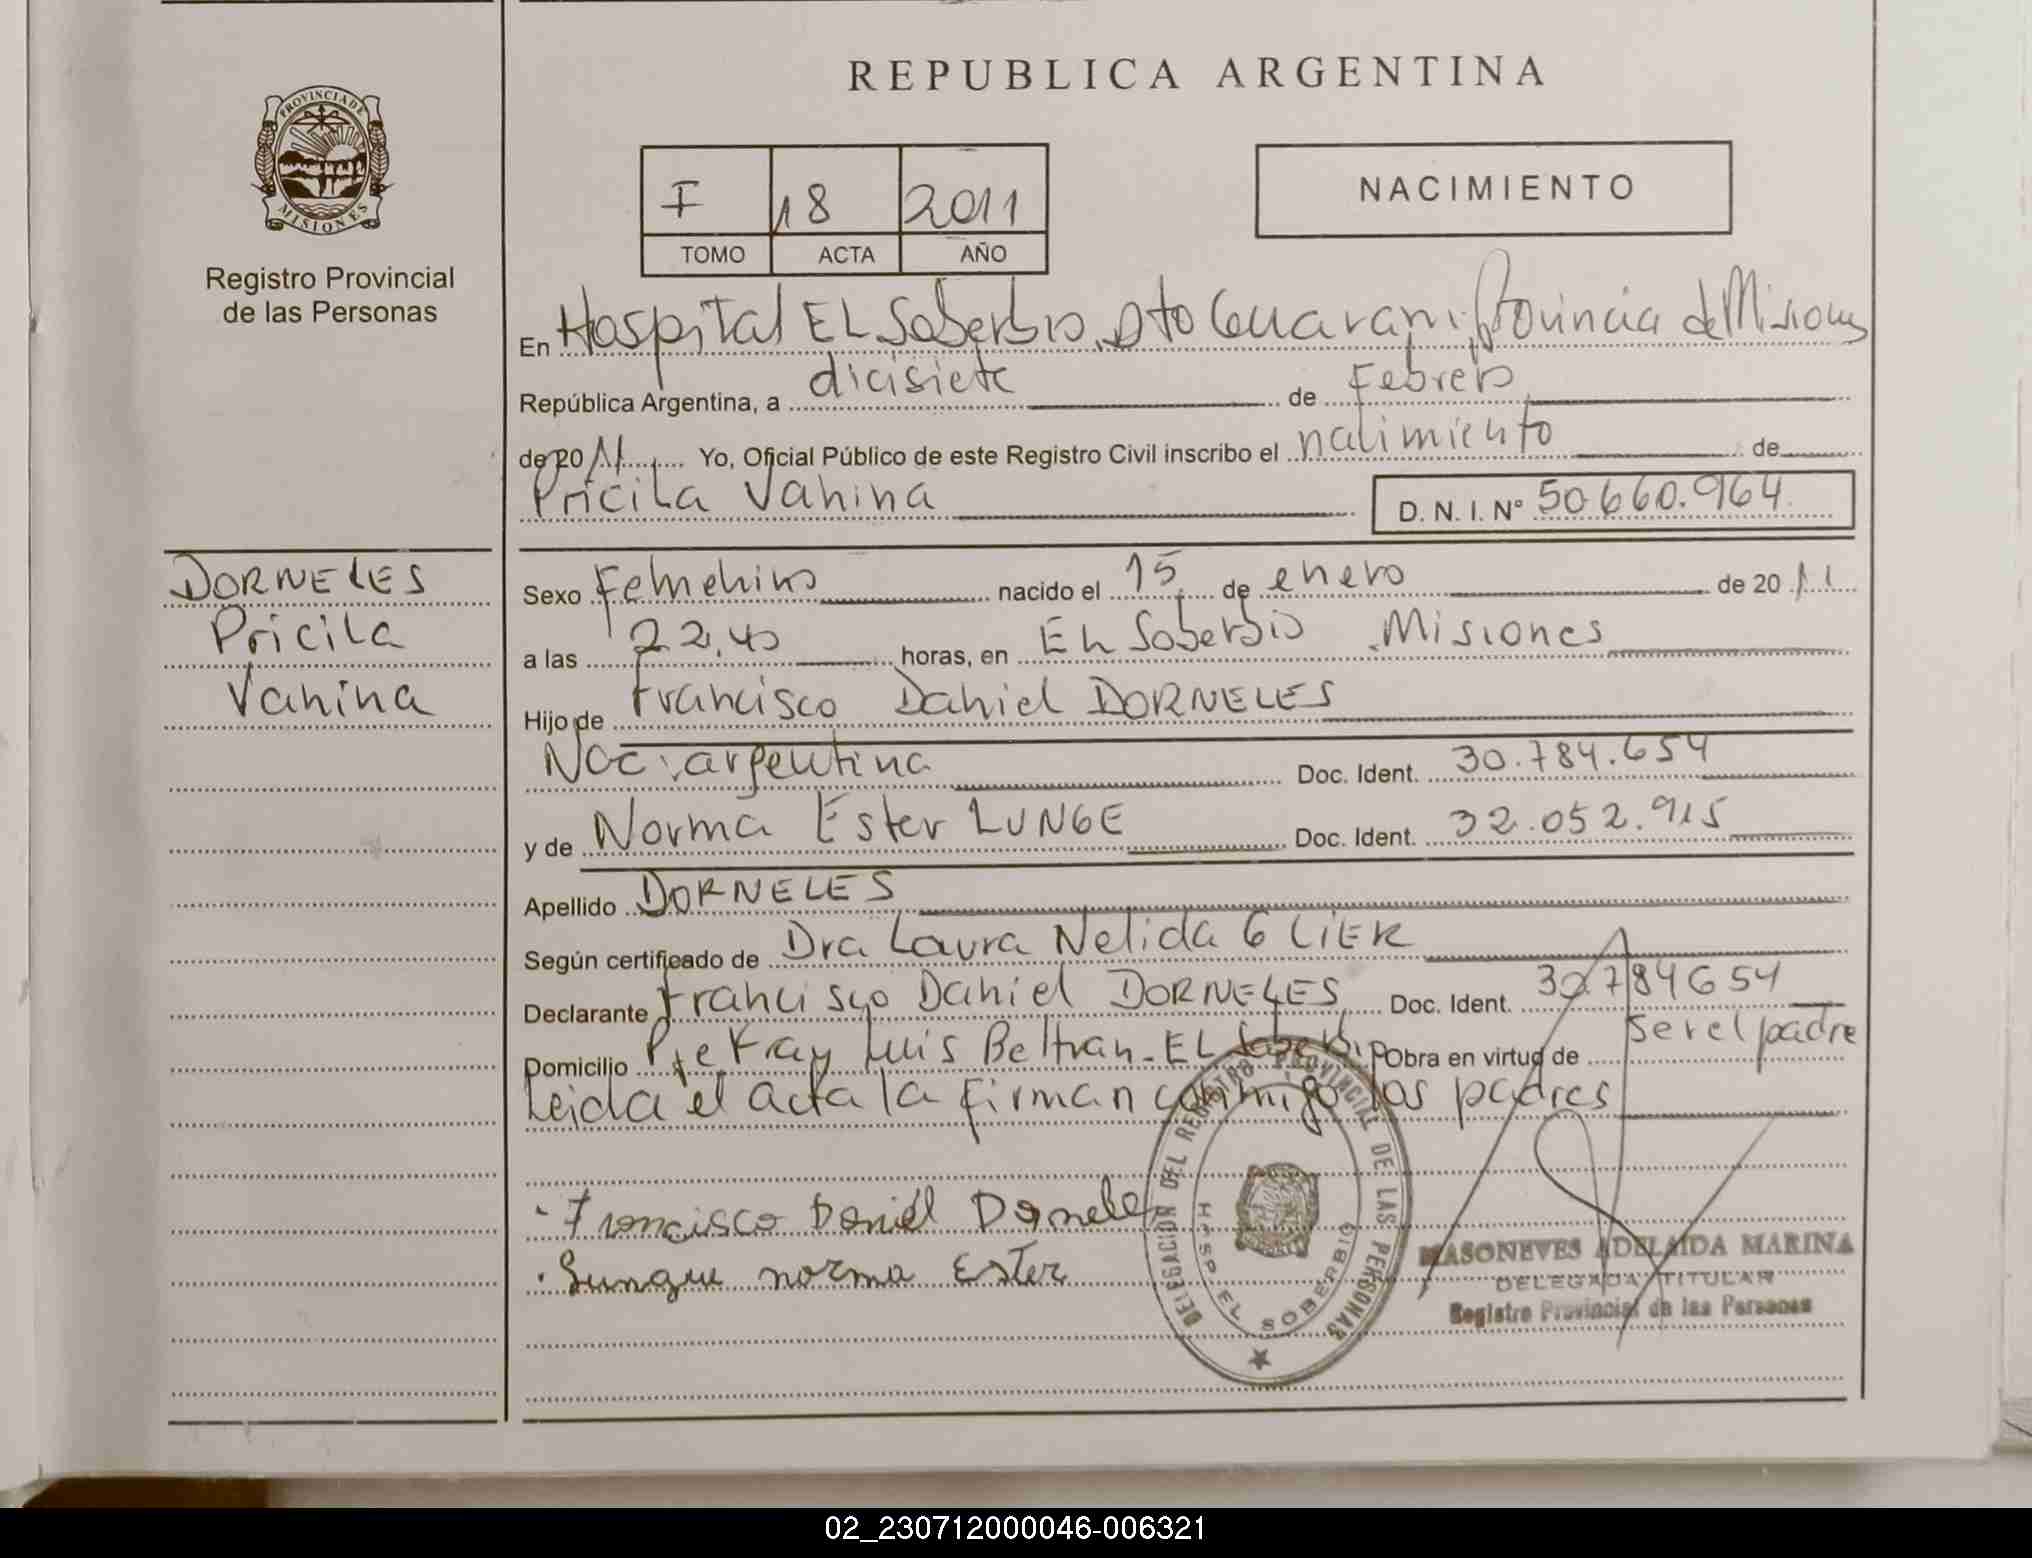 REPUBLICA ARGENTINA
PROVINCIA DE
MISIONES
Registro Provincial
de las Personas
I 18 2011
TOMO ACTA AÑO
NACIMIENTO
En Hospital EL Soberbio, Dto Guarani, Provincia de Misiones
República Argentina, a dicisiete de Febrero
de 2011 Yo, Oficial Público de este Registro Civil inscribo el nacimiento de
Pricila Vanina D. N. I. N° 50.660.964
DORNELES
Pricila
Vanina
Sexo Femenino nacido el 15 de enero de 2011
a las 22.40 horas, en EL Soberbio Misiones
Hijo de Francisco Daniel DORNELES
Nac. argentina Doc. Ident. 30.784.654
y de Norma Ester LUNGE Doc. Ident. 32.052.915
Apellido DORNELES
Según certificado de Dra Laura Nelida GLIER
Declarante Francisco Daniel DORNELES Doc. Ident. 30.784654
Domicilio Pje Fray Luis Beltran - EL Soberbio Obra en virtud de ser el padre
Leida el acta la firman conmigo los padres
Francisco Daniel Dorneles
Lungue norma Ester
DELEGACION DEL REGISTRO PROVINCIAL DE LAS PERSONAS
HOSP. EL SOBERBIO
MASONEVES ADELAIDA MARINA
DELEGADA TITULAR
Registro Provincial de las Personas
02_230712000046-006321